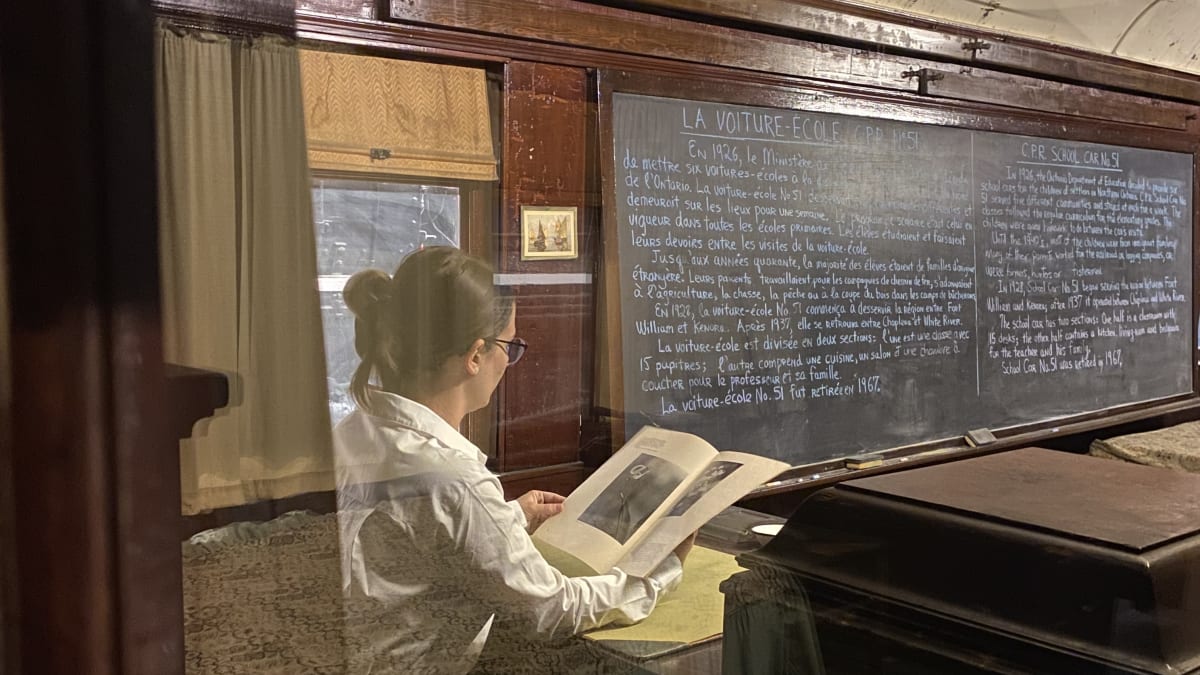 LA VOITURE-ÉCOLE C.P.R. No 51
EN 1926, le Ministère
de mettre six voitures-écoles à la
de l'Ontario. La voiture-école No 51
demeuroit sur les lieux pour une semaine. Le
vigueur dans toutes les écoles primaires. Les élèves étudraient et faisaient
leurs devoirs entre les visites de la voiture-école.
Jusqu'aux années quarante, la majorité des élèves étaient de familles d'origine
étrangère. Leurs parents travaillaient pour les compagnies de chemin de fer, s'adonnaient
à l'agriculture, la chasse, la pêche ou à la coupe du bois dans les camps de bûcherons.
EN 1928, la voiture-école No. 51 commença à desservir la région entre Fort
William et Kenora. Après 1937, elle se retrouva entre Chapleau et White River.
La voiture-école est divisée en deux sections: l'une est une classe avec
15 pupitres; l'autre comprend une cuisine, un salon et une chambre à
coucher pour le professeur et sa famille.
La voiture-école No. 51 fut retirée en 1967.
C.P.R. SCHOOL CAR No. 51
In 1926, the Ontario Department of Education decided to provide six
school cars for the children of settlers in Northern Ontario. C.P.R. School Car No.
51 served five different communities and stayed at each for a week. The
classes followed the regular curriculum for the elementary grades. The
children were given homework to do between the car's visits.
Until the 1940's, most of the children were from immigrant families.
Many of their parents worked for the railroad or logging companies, or
were farmers, hunters or fishermen.
In 1928, School Car No. 51 began serving the region between Fort
William and Kenora; after 1937 it operated between Chapleau and White River.
The school car has two sections: One half is a classroom with
15 desks; the other half contains a kitchen, living-room and bedroom
for the teacher and his family.
School Car No. 51 was retired in 1967.